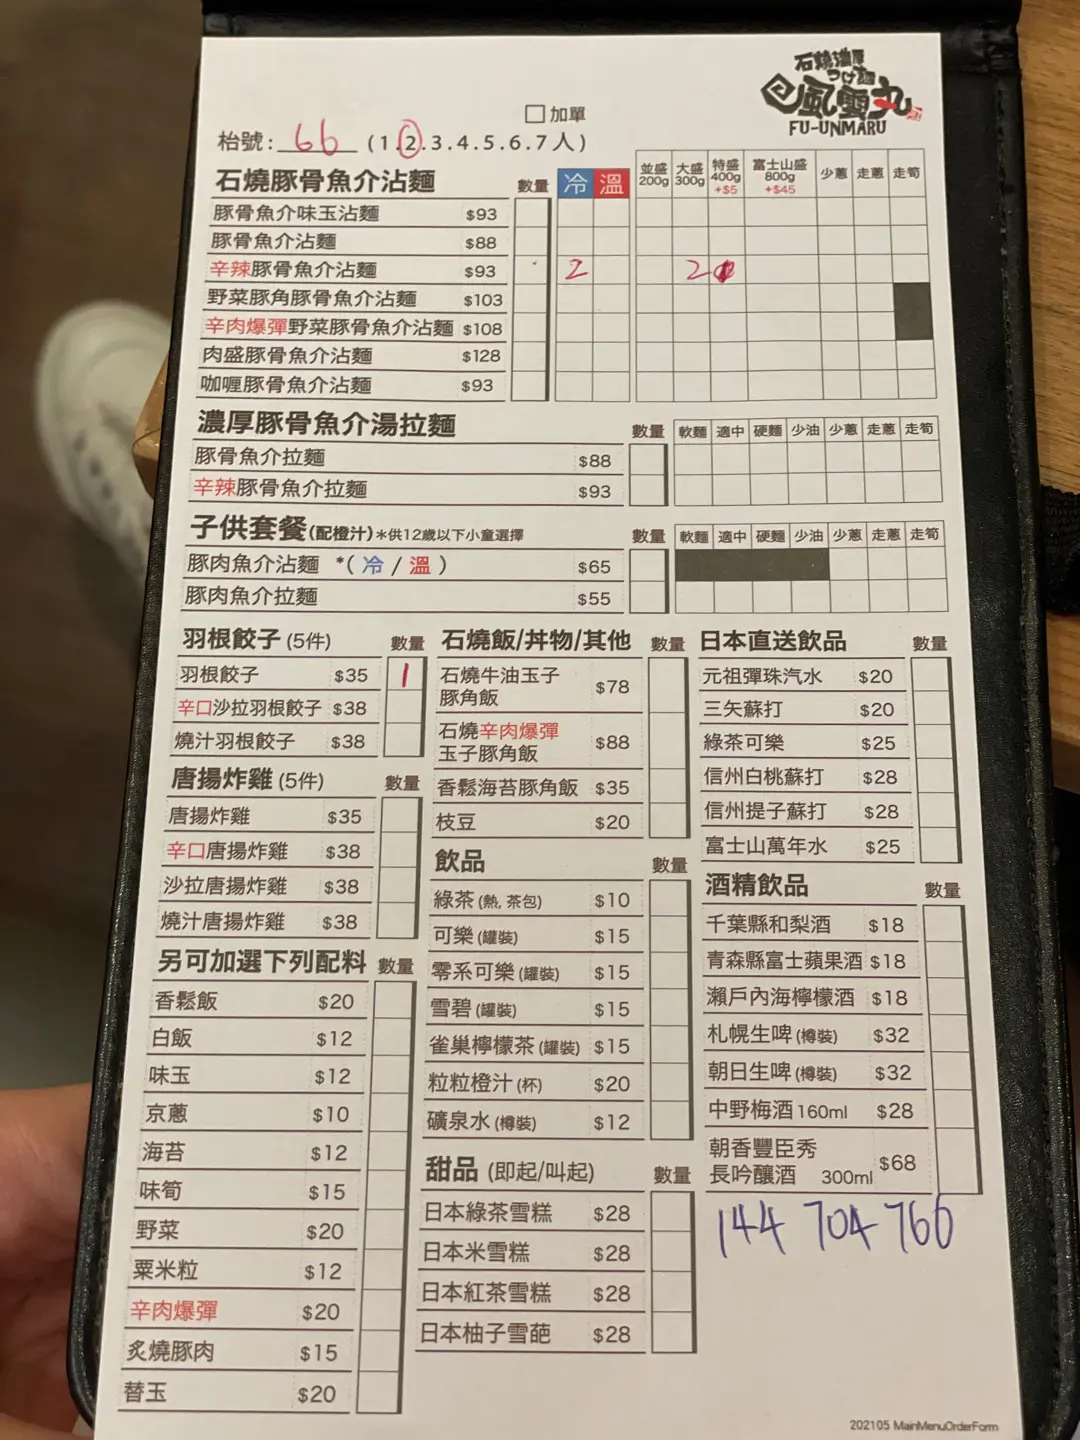 石燒濃厚
つけ麵
風雲丸
FU-UNMARU
加單
枱號: 66 (1.2.3.4.5.6.7人)
石燒豚骨魚介沾麵 數量 冷 溫 並盛200g 大盛300g 特盛400g+$5 富士山盛800g+$45 少蔥 走蔥 走筍
豚骨魚介味玉沾麵 $93
豚骨魚介沾麵 $88
辛辣豚骨魚介沾麵 $93 2 2
野菜豚角豚骨魚介沾麵 $103
辛肉爆彈野菜豚骨魚介沾麵 $108
肉盛豚骨魚介沾麵 $128
咖喱豚骨魚介沾麵 $93
濃厚豚骨魚介湯拉麵 數量 軟麵 適中 硬麵 少油 少蔥 走蔥 走筍
豚骨魚介拉麵 $88
辛辣豚骨魚介拉麵 $93
子供套餐(配橙汁)*供12歲以下小童選擇 數量 軟麵 適中 硬麵 少油 少蔥 走蔥 走筍
豚肉魚介沾麵 *(冷/溫) $65
豚肉魚介拉麵 $55
羽根餃子 (5件) 數量
羽根餃子 $35 1
辛口沙拉羽根餃子 $38
燒汁羽根餃子 $38
唐揚炸雞 (5件) 數量
唐揚炸雞 $35
辛口唐揚炸雞 $38
沙拉唐揚炸雞 $38
燒汁唐揚炸雞 $38
另可加選下列配料 數量
香鬆飯 $20
白飯 $12
味玉 $12
京蔥 $10
海苔 $12
味筍 $15
野菜 $20
粟米粒 $12
辛肉爆彈 $20
炙燒豚肉 $15
替玉 $20
石燒飯/丼物/其他 數量
石燒牛油玉子
豚角飯 $78
石燒辛肉爆彈
玉子豚角飯 $88
香鬆海苔豚角飯 $35
枝豆 $20
飲品 數量
綠茶 (熱, 茶包) $10
可樂 (罐裝) $15
零系可樂 (罐裝) $15
雪碧 (罐裝) $15
雀巢檸檬茶 (罐裝) $15
粒粒橙汁 (杯) $20
礦泉水 (樽裝) $12
甜品 (即起/叫起) 數量
日本綠茶雪糕 $28
日本米雪糕 $28
日本紅茶雪糕 $28
日本柚子雪葩 $28
日本直送飲品 數量
元祖彈珠汽水 $20
三矢蘇打 $20
綠茶可樂 $25
信州白桃蘇打 $28
信州提子蘇打 $28
富士山萬年水 $25
酒精飲品 數量
千葉縣和梨酒 $18
青森縣富士蘋果酒 $18
瀨戶內海檸檬酒 $18
札幌生啤 (樽裝) $32
朝日生啤 (樽裝) $32
中野梅酒 160ml $28
朝香豐臣秀
長吟釀酒 300ml $68
144 704 766
202105 MainMenuOrderForm